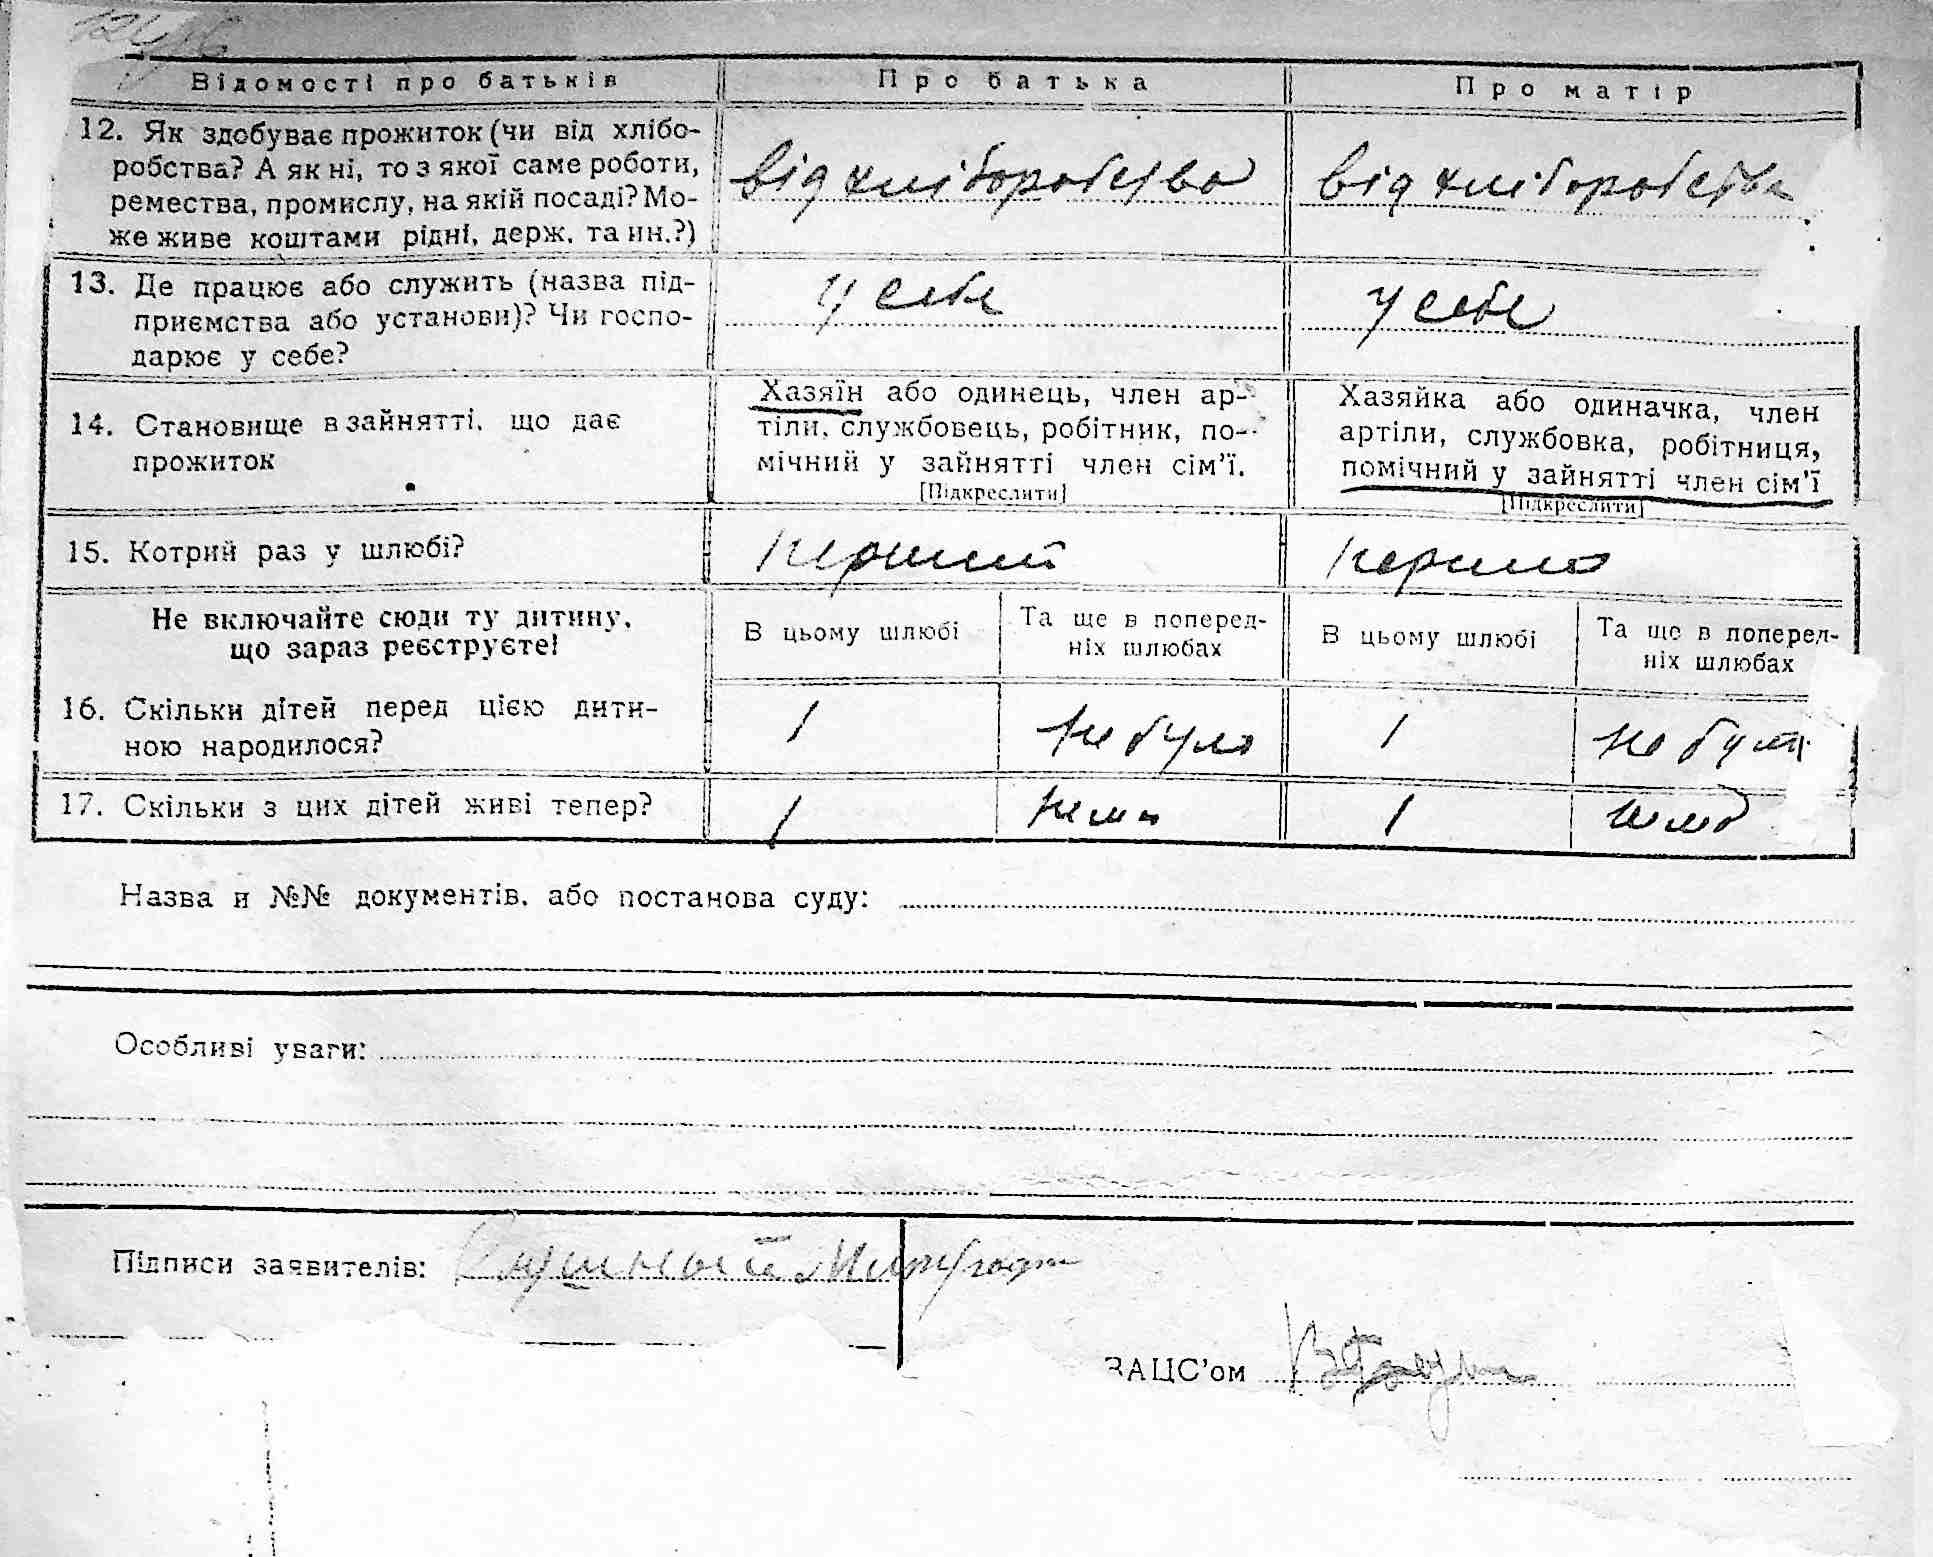 Відомості про батьків Про батька Про матір
12. Як здобуває прожиток (чи від хлібо-
робства? А як ні, то з якої саме роботи,
ремества, промислу, на якій посаді? Мо-
же живе коштами рідні, держ. та ин.?)
від хліборобства від хліборобства
13. Де працює або служить (назва під-
приємства або установи)? Чи госпо-
дарює у себе?
у себе у себе
14. Становище в зайнятті, що дає
прожиток
Хазяїн або одинець, член ар-
тіли, службовець, робітник, по-
мічний у зайнятті член сім’ї.
[Підкреслити]
Хазяйка або одиначка, член
артіли, службовка, робітниця,
помічний у зайнятті член сім’ї
[Підкреслити]
15. Котрий раз у шлюбі?
перший
Не включайте сюди ту дитину,
що зараз реєструєте!
В цьому шлюбі
Та ще в поперед-
ніх шлюбах
В цьому шлюбі
Та ще в поперед-
ніх шлюбах
16. Скільки дітей перед цією дити-
ною народилося?
1 не було 1 не було
17. Скільки з цих дітей живі тепер?
1 нема 1 нема
Назва й №№ документів, або постанова суду:
Особливі уваги:
Підписи заявителів:
ЗАЦС’ом